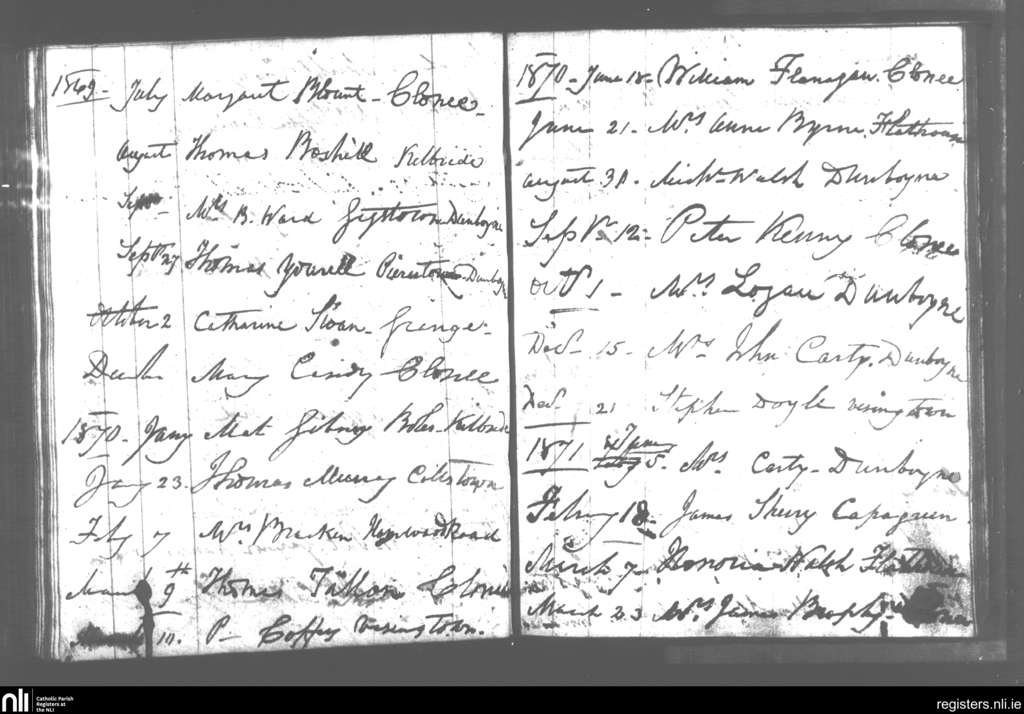 1869 - July Margaret Blount - Clonee -
August Thomas Boshell Kilbride
Sept Mrs B. Ward Gystown Dunboyne
Septbr 27 Thomas Yourell Piercetown Dunboyne
October 2 Catharine Sloan - Grenge -
Mary Clonee
1870 - Jany Mat Gibney Kilbride
Jany 23. Thomas Murray
Feby 7 Mrs Bracken Road
March 9th Thomas Fallon Clonee
10. P - Coffey Vesingtown.
1870 - June 18 - William Flanagan. Clonee
June 21 - Mrs Anne Byrne. Flathouse
August 31. Michl Walsh Dunboyne
Sept 12 - Peter Kenny Clonee
Oct 1 - Mrs. Logan Dunboyne
Decr - 15 - Mrs John Carty. Dunboyne
Decr 21 Stephen Doyle vesingtown
1871 Jany 5. Mrs Carty - Dunboyne
Febry 18 - James Sherry Capagreen
March 7 Honoria Walsh Flathouse
March 23 Mrs James Brophy -
nli Catholic Parish Registers at the NLI
registers.nli.ie